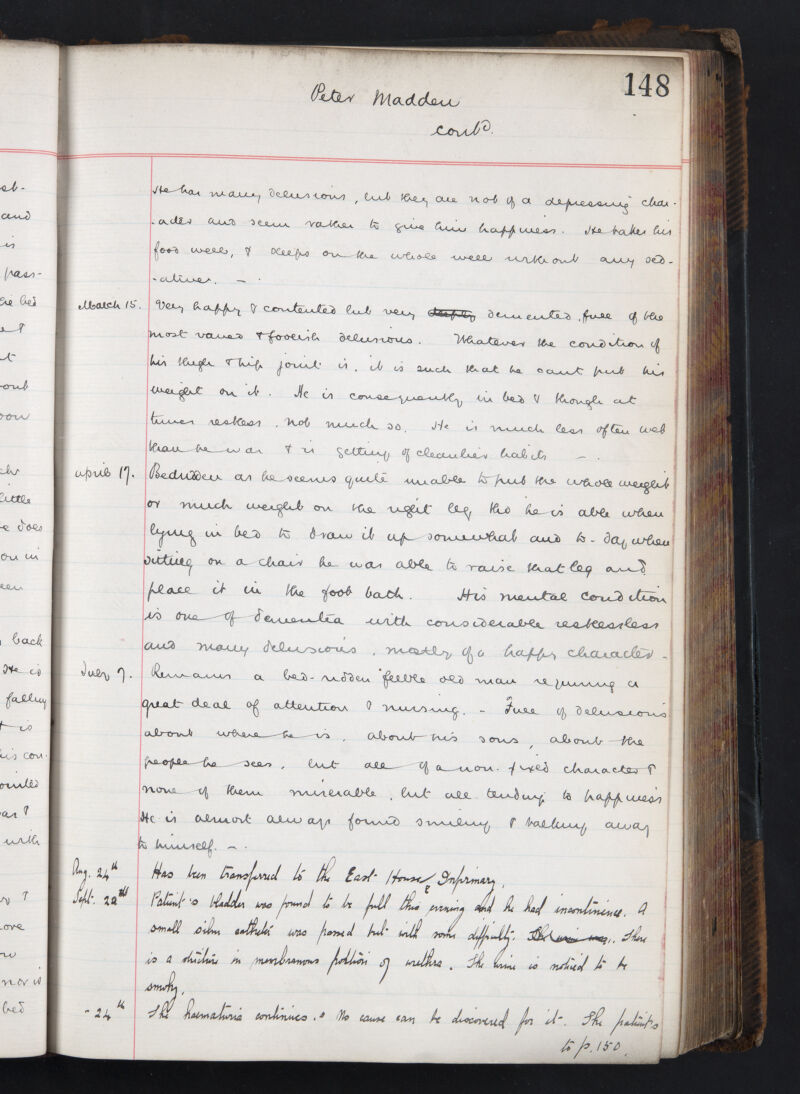 148
Peter Madden
contd.
He has many delusions, but they are not of a depressing char-
-acter and seem rather to give him happiness. He takes his
food well, & sleeps on the whole well without any sed-
-atives. -
March 15. Very happy & contented but very demented, full of the
most varied & foolish delusions. Whatever the condition of
his thigh & hip joint is, it is such that he cant put his
weight on it. He is consequently in bed & though at
times restless, not much so. He is much less often wet
than he was & is getting of cleanlier habits -.
April 17. Bedridden as he seems quite unable to put the whole weight
or much weight on the right leg tho he is able when
lying in bed to draw it up somewhat and to-day when
sitting on a chair he was able to raise that leg and
place it in the foot bath. His mental condition
is one of dementia with considerable restlessless
and many delusions, mostly of a happy character -
July 7. Remains a bed-ridden feeble old man requiring a
great deal of attention & nursing. - Full of delusions
about where he is, about his sons, about the
people he sees, but all of a non-fixed character &
none of them miserable, but all tending to happiness
He is almost always found smiling & talking away
to himself. -.
Aug. 24th Has been transferred to the East House Infirmary.
Sept. 22nd Patient's bladder was found to be full this evening and he had incontinence. A
small silver catheter was passed but with some difficulty. There
is a stricture in membranous portion of urethra. The urine is noticed to be
smoky.
- 24th The haematuria continues. No cause can be discovered for it. The patient's
to p. 150.
st-
and
is
pass-
bed
little
does
on in
back
He is
falling
his con-
with
nor is
bed